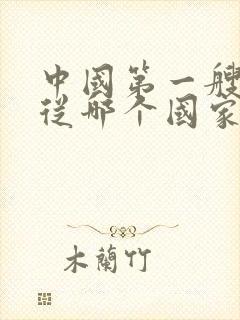 中國第一艘
從哪个國家
木蘭竹